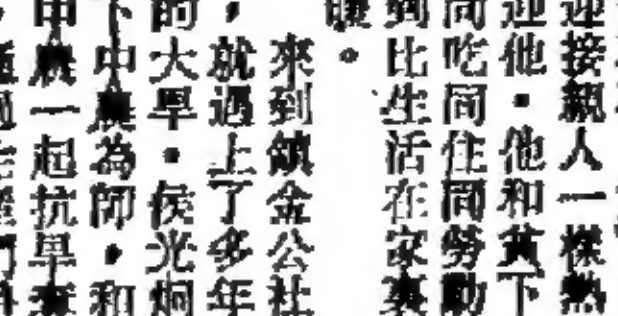 迎接親人一樣熱
迎他。他和貧下
同吃同住同勞動
到比生活在家裏
。
來到鎮金公社
,就遇上了多年
的大旱。侯光炯
下中農為師,和
中農一起抗旱